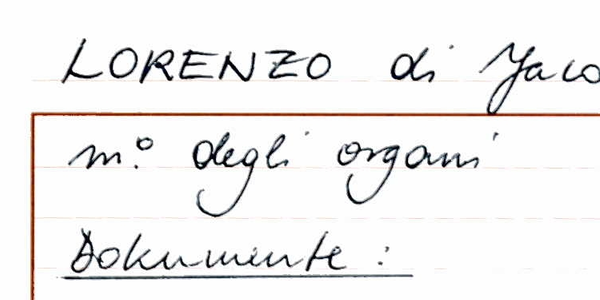 LORENZO di Jaco
m.º degli organi
Dokumente :